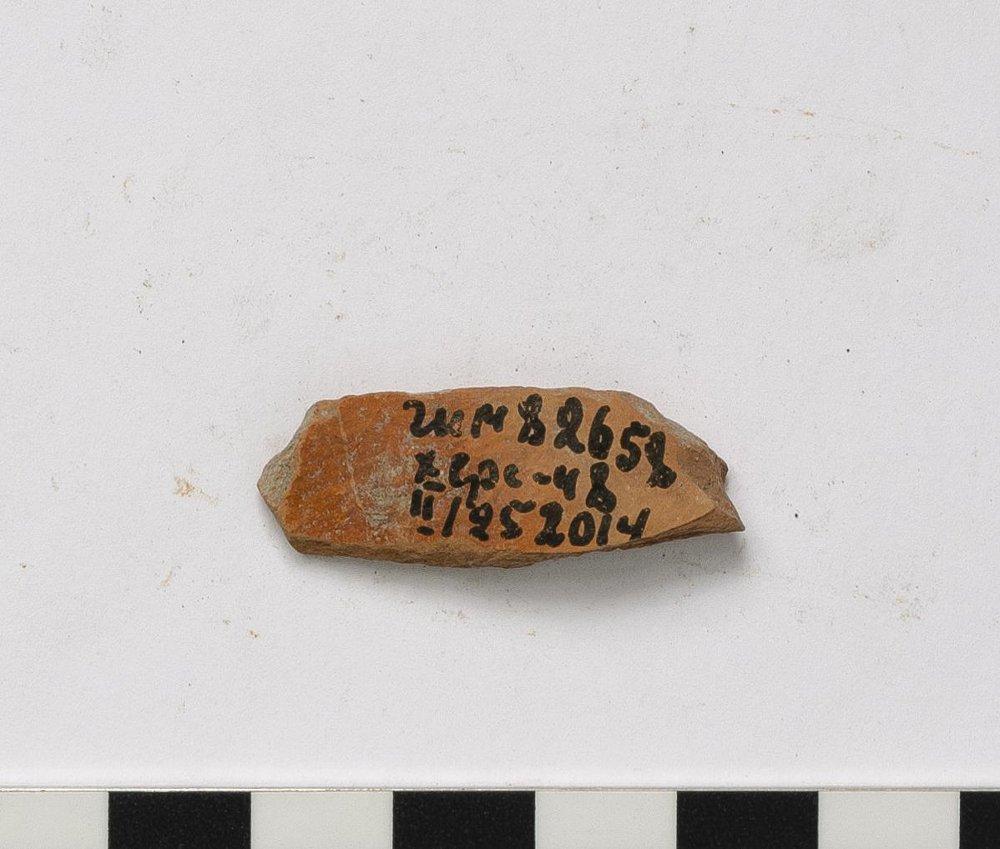 гим 82658
херс-48
II/125 2014